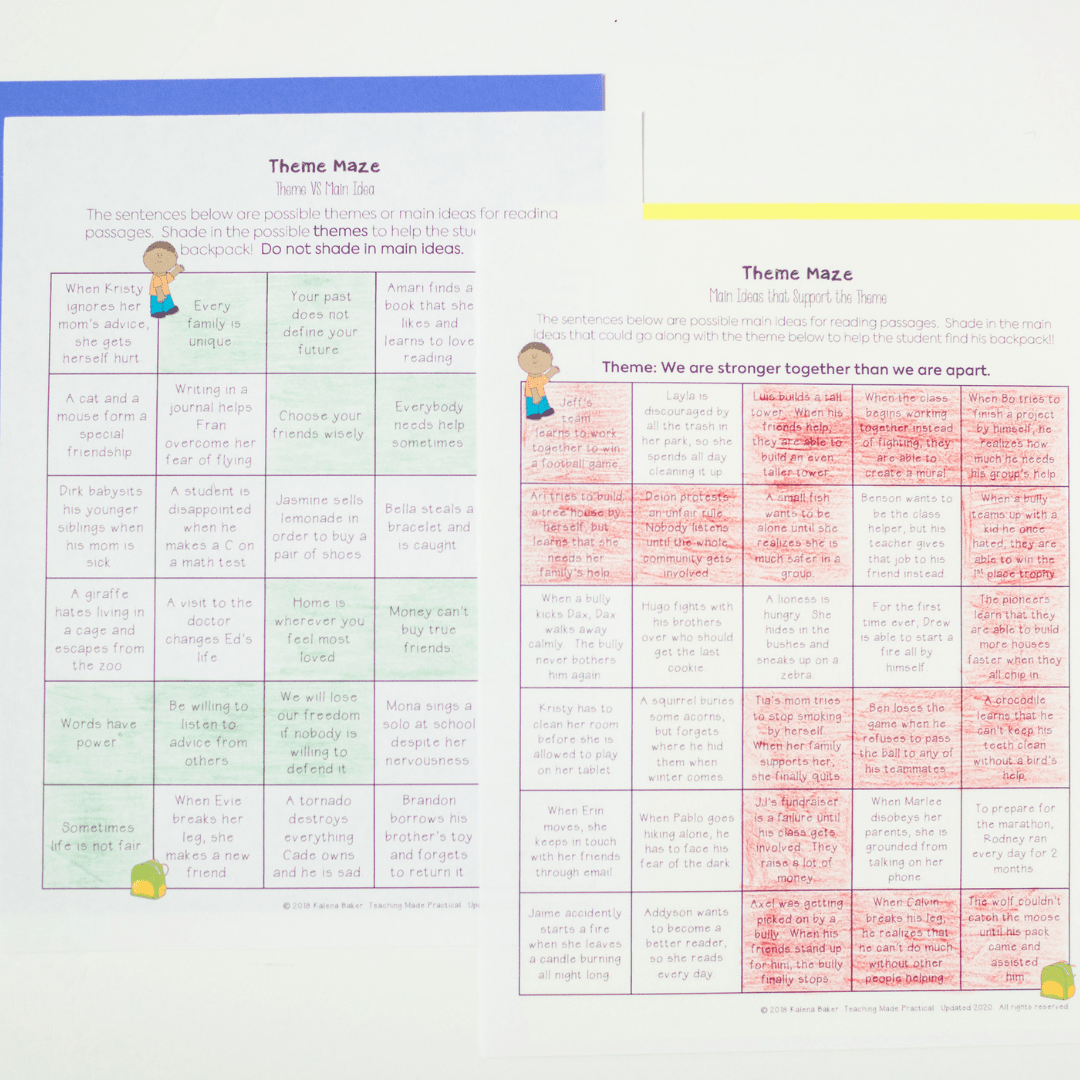 Theme Maze
Theme VS Main Idea
The sentences below are possible themes or main ideas for reading
passages. Shade in the possible themes to help the
backpack! Do not shade in main ideas.
When Kristy
ignores her
mom's advice,
she gets
herself hurt
Every
family is
unique
Your past
does not
define your
future
Amari finds a
book that she
likes and
learns to love
reading
A cat and a
mouse form a
special
friendship
Writing in a
journal helps
Fran
overcome her
fear of flying
Choose your
friends wisely
Everybody
needs help
sometimes
Dirk babysits
his younger
siblings when
his mom is
sick
A student is
disappointed
when he
makes a C on
a math test
Jasmine sells
lemonade in
order to buy a
pair of shoes
Bella steals a
bracelet and
is caught
A giraffe
hates living in
a cage and
escapes from
the zoo
A visit to the
doctor
changes Ed's
life
Home is
wherever you
feel most
loved
Money can't
buy true
friends
Words have
power
Be willing to
listen to
advice from
others
We will lose
our freedom
if nobody is
willing to
defend it
Mona sings a
solo at school
despite her
nervousness
Sometimes
life is not fair
When Evie
breaks her
leg, she
makes a new
friend
A tornado
destroys
everything
Cade owns
and he is sad
Brandon
borrows his
brother's toy
and forgets
to return it
© 2018 Kalena Baker Teaching Made Practical
Theme Maze
Main Ideas that Support the Theme
The sentences below are possible main ideas for reading passages. Shade in the main
ideas that could go along with the theme below to help the student find his backpack!!
Theme: We are stronger together than we are apart.
Jeff's
team
learns to work
together to win
a football game.
Layla is
discouraged by
all the trash in
her park, so she
spends all day
cleaning it up
Luis builds a tall
tower. When his
friends help,
they are able to
build an even
taller tower.
When the class
begins working
together instead
of fighting, they
are able to
create a mural
When Bo tries to
finish a project
by himself, he
realizes how
much he needs
his group's help
Ari tries to build
a tree house by
herself, but
learns that she
needs her
family's help.
Deion protests
an unfair rule.
Nobody listens
until the whole
community gets
involved.
A small fish
wants to be
alone until she
realizes she is
much safer in a
group.
Benson wants to
be the class
helper, but his
teacher gives
that job to his
friend instead
When a bully
teams up with a
kid he once
hated, they are
able to win the
1st place trophy
When a bully
kicks Dax, Dax
walks away
calmly. The bully
never bothers
him again
Hugo fights with
his brothers
over who should
get the last
cookie
A lioness is
hungry. She
hides in the
bushes and
sneaks up on a
zebra.
For the first
time ever, Drew
is able to start a
fire all by
himself
The pioneers
learn that they
are able to build
more houses
faster when they
all chip in
Kristy has to
clean her room
before she is
allowed to play
on her tablet
A squirrel buries
some acorns,
but forgets
where he hid
them when
winter comes
Tia's mom tries
to stop smoking
by herself.
When her family
supports her,
she finally quits.
Ben loses the
game when he
refuses to pass
the ball to any of
his teammates.
A crocodile
learns that he
can't keep his
teeth clean
without a bird's
help.
When Erin
moves, she
keeps in touch
with her friends
through email
When Pablo goes
hiking alone, he
has to face his
fear of the dark.
JJ's fundraiser
is a failure until
his class gets
involved. They
raise a lot of
money.
When Marlee
disobeys her
parents, she is
grounded from
talking on her
phone
To prepare for
the marathon,
Rodney ran
every day for 2
months
Jaime accidently
starts a fire
when she leaves
a candle burning
all night long
Addyson wants
to become a
better reader,
so she reads
every day
Axel was getting
picked on by a
bully. When his
friends stand up
for him, the bully
finally stops.
When Calvin
breaks his leg,
he realizes that
he can't do much
without other
people helping
The wolf couldn't
catch the moose
until his pack
came and
assisted
him
© 2018 Kalena Baker Teaching Made Practical Updated 2020 All rights reserved